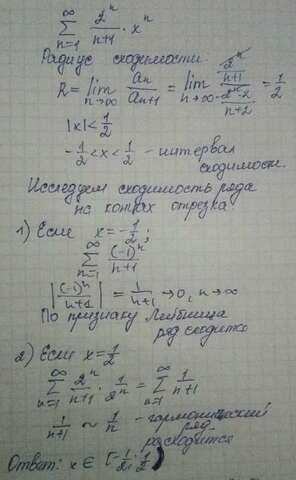 ∞
∑ 2ⁿ/(n+1) · xⁿ
n=1
Радиус сходимости.
R = lim aₙ/aₙ₊₁ = lim (2ⁿ/(n+1))/(2ⁿ·2/(n+2)) = 1/2
n→∞ n→∞
|x| < 1/2
-1/2 < x < 1/2 - интервал
сходимост.
Исследуем сходимость ряда
на концах отрезка
1) Если x = -1/2;
∞
∑ (-1)ⁿ/(n+1)
n=1
|(-1)ⁿ/(n+1)| = 1/(n+1) → 0, n → ∞
По признаку Лейбница
ряд сходится
2) Если x = 1/2
∞ ∞
∑ 2ⁿ/(n+1) · 1/2ⁿ = ∑ 1/(n+1)
n=1 n=1
1/(n+1) ~ 1/n - гармонический
ряд
расходится
Ответ: x ∈ [-1/2; 1/2)